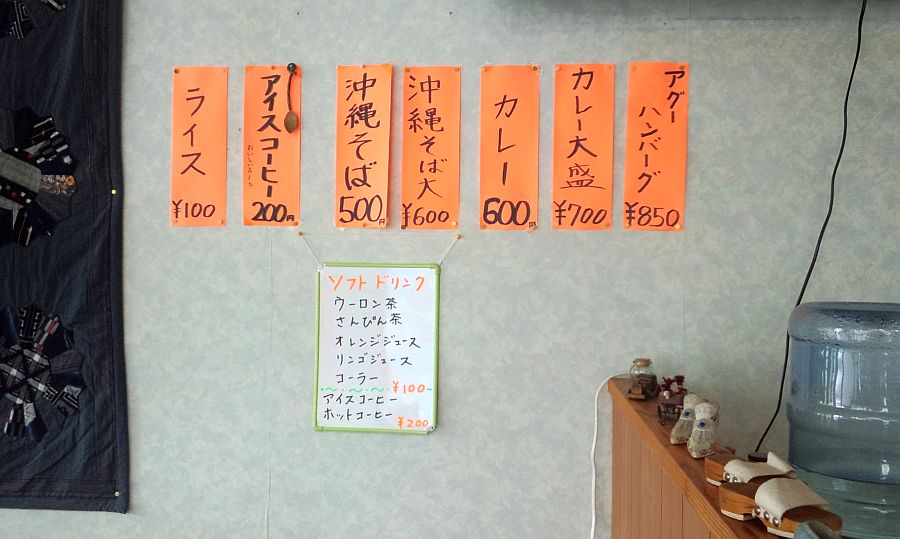 ライス
¥100
アイスコーヒー
おいしいよ〜っ
200円
沖縄そば
500円
沖縄そば大
¥600
カレー
600円
カレー大盛
¥700
アグー
ハンバーグ
¥850
ソフトドリンク
ウーロン茶
さんぴん茶
オレンジジュース
リンゴジュース
コーラー
¥100
アイスコーヒー
ホットコーヒー
¥200